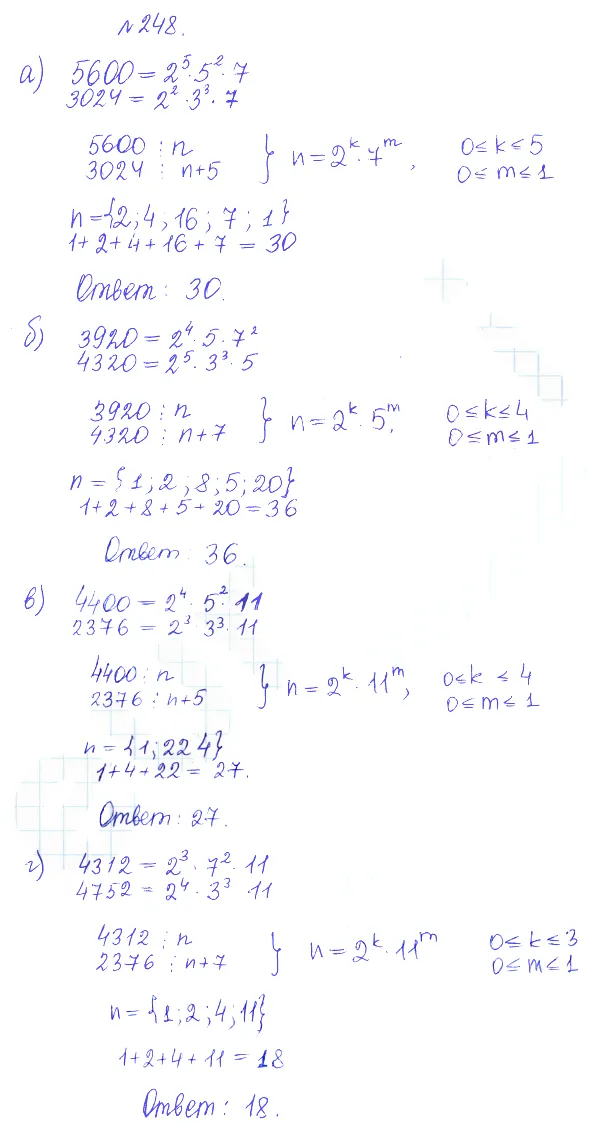 №248.
а) 5600 = 2⁵·5²·7
3024 = 2²·3³·7
5600 ⋮ n
3024 ⋮ n+5 } n = 2ᵏ·7ᵐ, 0≤k≤5
0≤m≤1
n={2;4,16;7;1}
1+2+4+16+7 = 30
Ответ: 30.
б) 3920 = 2⁴·5·7²
4320 = 2⁵·3³·5
3920 ⋮ n
4320 ⋮ n+7 } n = 2ᵏ·5ᵐ, 0≤k≤4
0≤m≤1
n = {1;2;8;5;20}
1+2+8+5+20=36
Ответ: 36.
в) 4400 = 2⁴·5²·11
2376 = 2³·3³·11
4400 ⋮ n
2376 ⋮ n+5 } n = 2ᵏ·11ᵐ, 0≤k≤4
0≤m≤1
n = {1;22 4}
1+4+22 = 27.
Ответ: 27.
г) 4312 = 2³·7²·11
4752 = 2⁴·3³ 11
4312 ⋮ n
2376 ⋮ n+7 } n = 2ᵏ·11ᵐ 0≤k≤3
0≤m≤1
n = {1;2;4;11}
1+2+4+11 = 18
Ответ: 18.